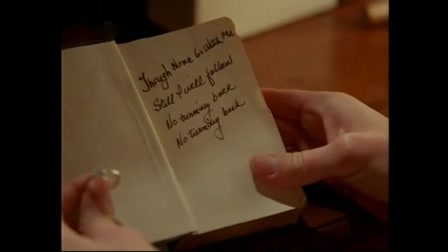 Though None Go With Me
Still I will follow
No turning back
No turning back